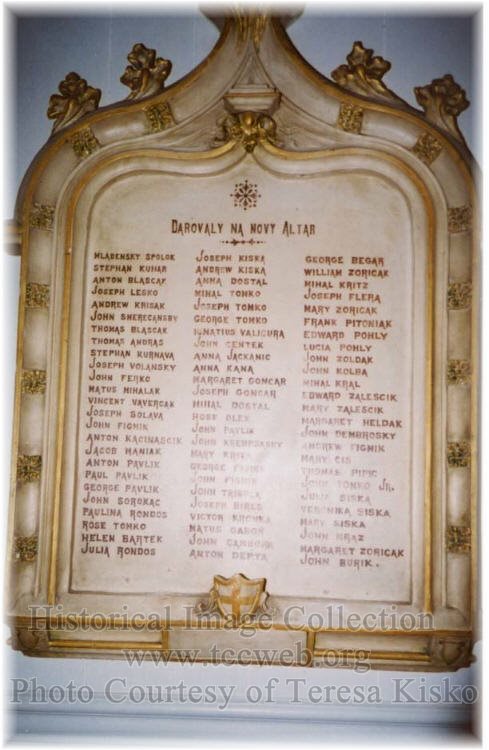 DAROVALY NA NOVY ALTAR
MLADENSKY SPOLOK
STEPHAN KUHAR
ANTON BLASCAK
JOSEPH LESKO
ANDREW KRISAK
JOHN SMERECANSBY
THOMAS BLASCAK
THOMAS ANDRAS
STEPHAN KURNAVA
JOSEPH VOLANSKY
JOHN FERKO
MATUS MIHALAK
VINCENT VAVERCAK
JOSEPH SOLAVA
JOHN FIGMIK
ANTON KACINASCIK
JACOB MANIAK
ANTON PAVLIK
PAUL PAVLIK
GEORGE PAVLIK
JOHN SOROKAC
PAULINA RONDOS
ROSE TOMKO
HELEN BARTEK
JULIA RONDOS
JOSEPH KISKA
ANDREW KISKA
ANNA DOSTAL
MIHAL TOMKO
JOSEPH TOMKO
GEORGE TOMKO
IGNATIUS VALIGURA
JOHN CENTEK
ANNA JACKANIC
ANNA KANA
MARGARET GONCAR
JOSEPH GONCAR
MIHAL DOSTAL
ROSE OLEX
JOHN PAVLIK
JOHN KREMPASKY
MARY
GEORGE
JOHN FIGMIK
JOHN
JOSEPH BIRES
VICTOR KROMKA
MATUS GABOR
JOHN
ANTON DEPTA
GEORGE BEGAR
WILLIAM ZORICAK
MIHAL KRITZ
JOSEPH FLERA
MARY ZORICAK
FRANK PITONIAK
EDWARD POHLY
LUCIA POHLY
JOHN ZOLDAK
JOHN KOLBA
MIHAL KRAL
EDWARD ZALESCIK
MARY ZALESCIK
MARGARET HELDAK
JOHN DEMBROSKY
ANDREW FIGMIK
MARY CIS
THOMAS
JOHN TOMKO JR.
JULIA SISKA
VERONIKA SISKA
MARY SISKA
JOHN MRAZ
MARGARET ZORICAK
JOHN BURIK.
Historical Image Collection
www.tccweb.org
Photo Courtesy of Teresa Kisko